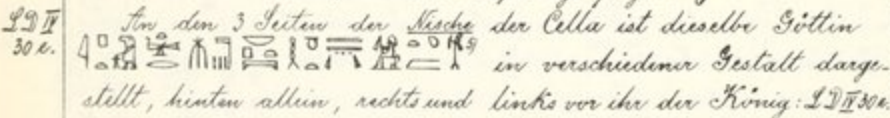 LD IV
30 e.
An den 3 Seiten der Nische der Cella ist dieselbe Göttin
in verschiedener Gestalt darge-
stellt, hinten allein, rechts und links vor ihr der König: LD IV 30 e.